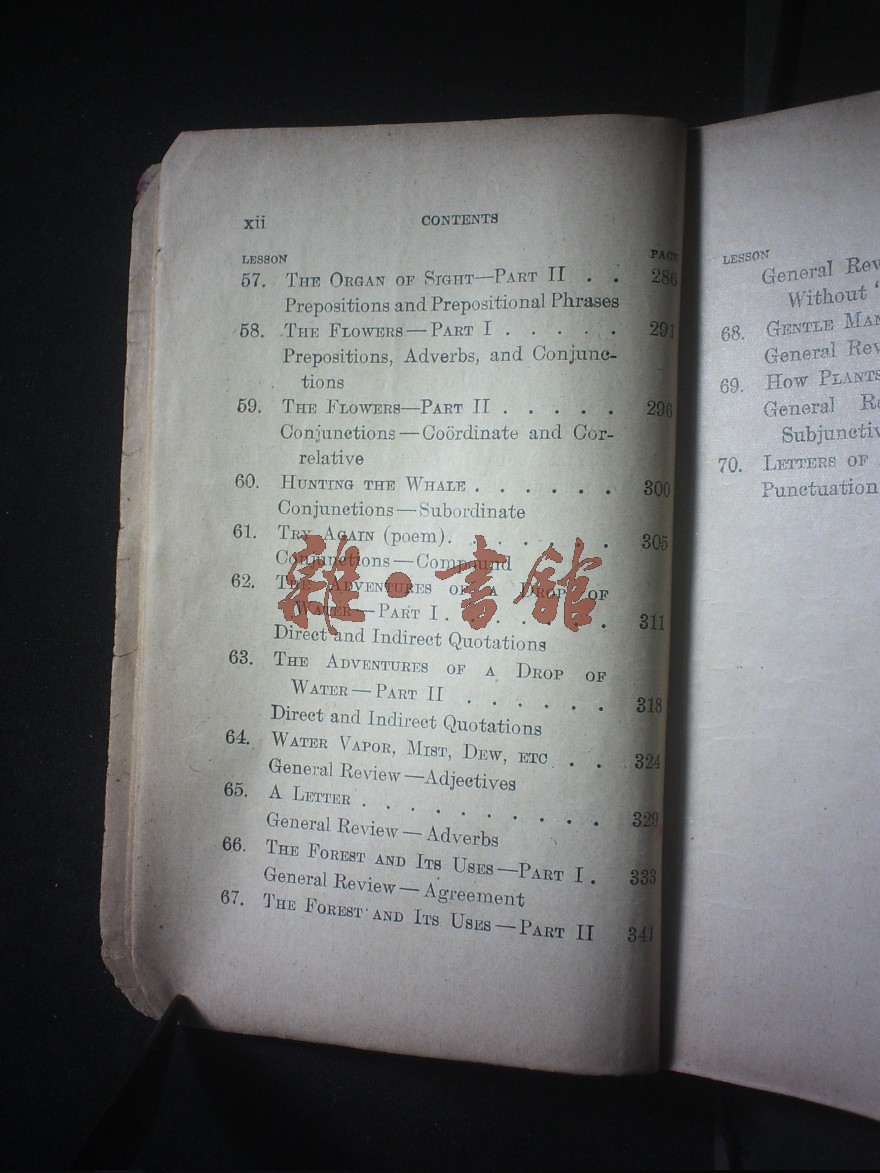 xii
CONTENTS
LESSON
PAGE
57. THE ORGAN OF SIGHT—PART II . . 286
Prepositions and Prepositional Phrases
58. THE FLOWERS—PART I . . . . . 291
Prepositions, Adverbs, and Conjunc-
tions
59. THE FLOWERS—PART II . . . . . 296
Conjunctions—Coördinate and Cor-
relative
60. HUNTING THE WHALE . . . . . . 300
Conjunctions—Subordinate
61. TRY AGAIN (poem). . . . . . . 305
Conjunctions—Compound
62. THE ADVENTURES OF A DROP OF
WATER—PART I . . . . . . . 311
Direct and Indirect Quotations
63. THE ADVENTURES OF A DROP OF
WATER—PART II . . . . . . 318
Direct and Indirect Quotations
64. WATER VAPOR, MIST, DEW, ETC . . 324
General Review—Adjectives
65. A LETTER . . . . . . . . . 329
General Review—Adverbs
66. THE FOREST AND ITS USES—PART I . 333
General Review—Agreement
67. THE FOREST AND ITS USES—PART II 341
雜·書館
LESSON
General Rev
Without '
68. GENTLE MAN
General Rev
69. HOW PLANTS
General Re
Subjunctiv
70. LETTERS OF
Punctuation